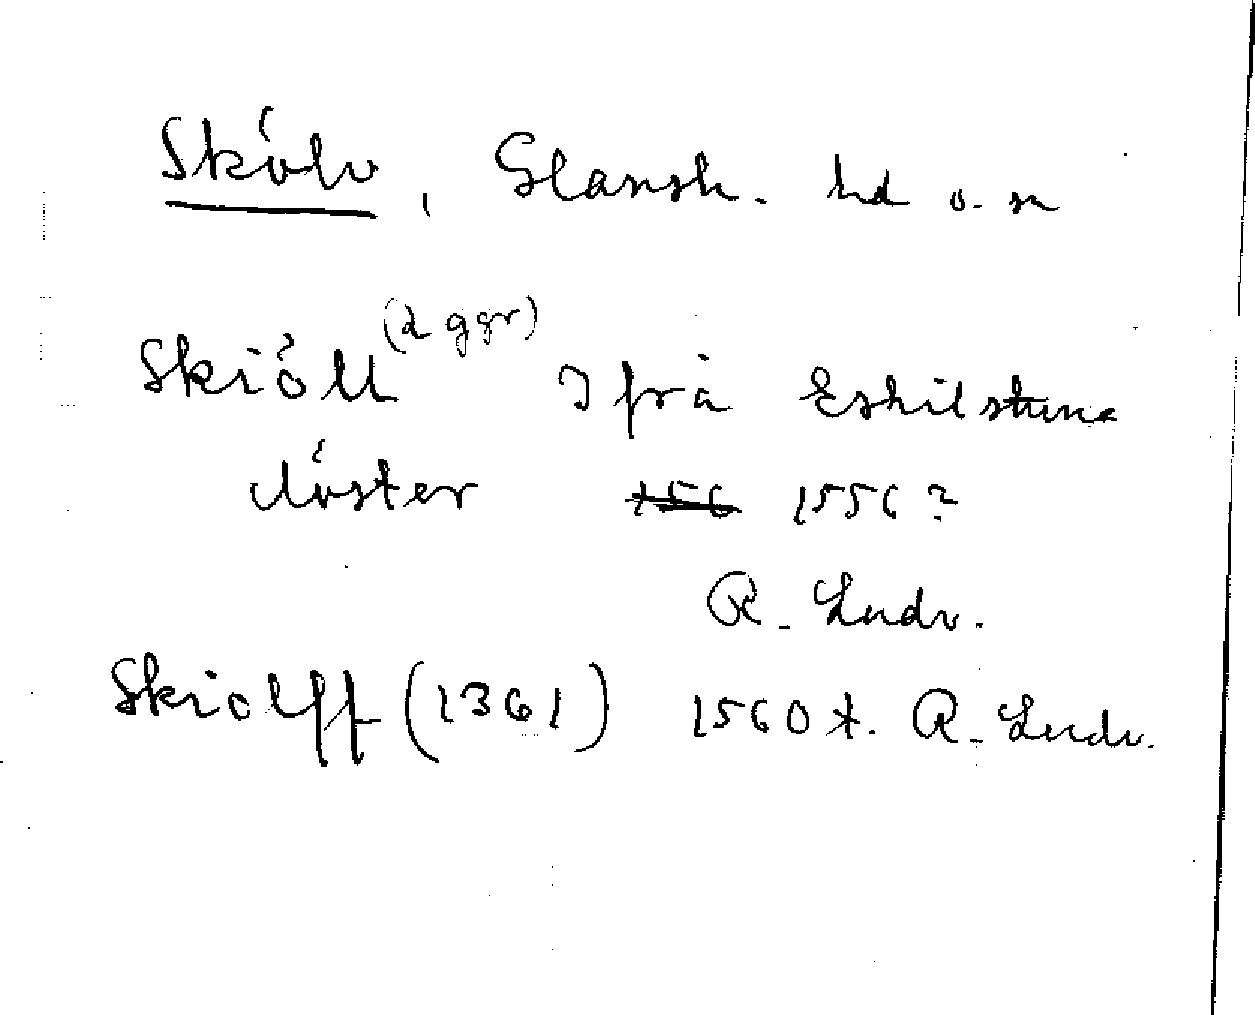 Skölv, Glansh. hd o. sn
Skiöll (2 ggr) Ifrå Eskilstuna
clöster 156 1556?
R. Ludv.
Skiolff (1361) 1560 t. R. Ludv.